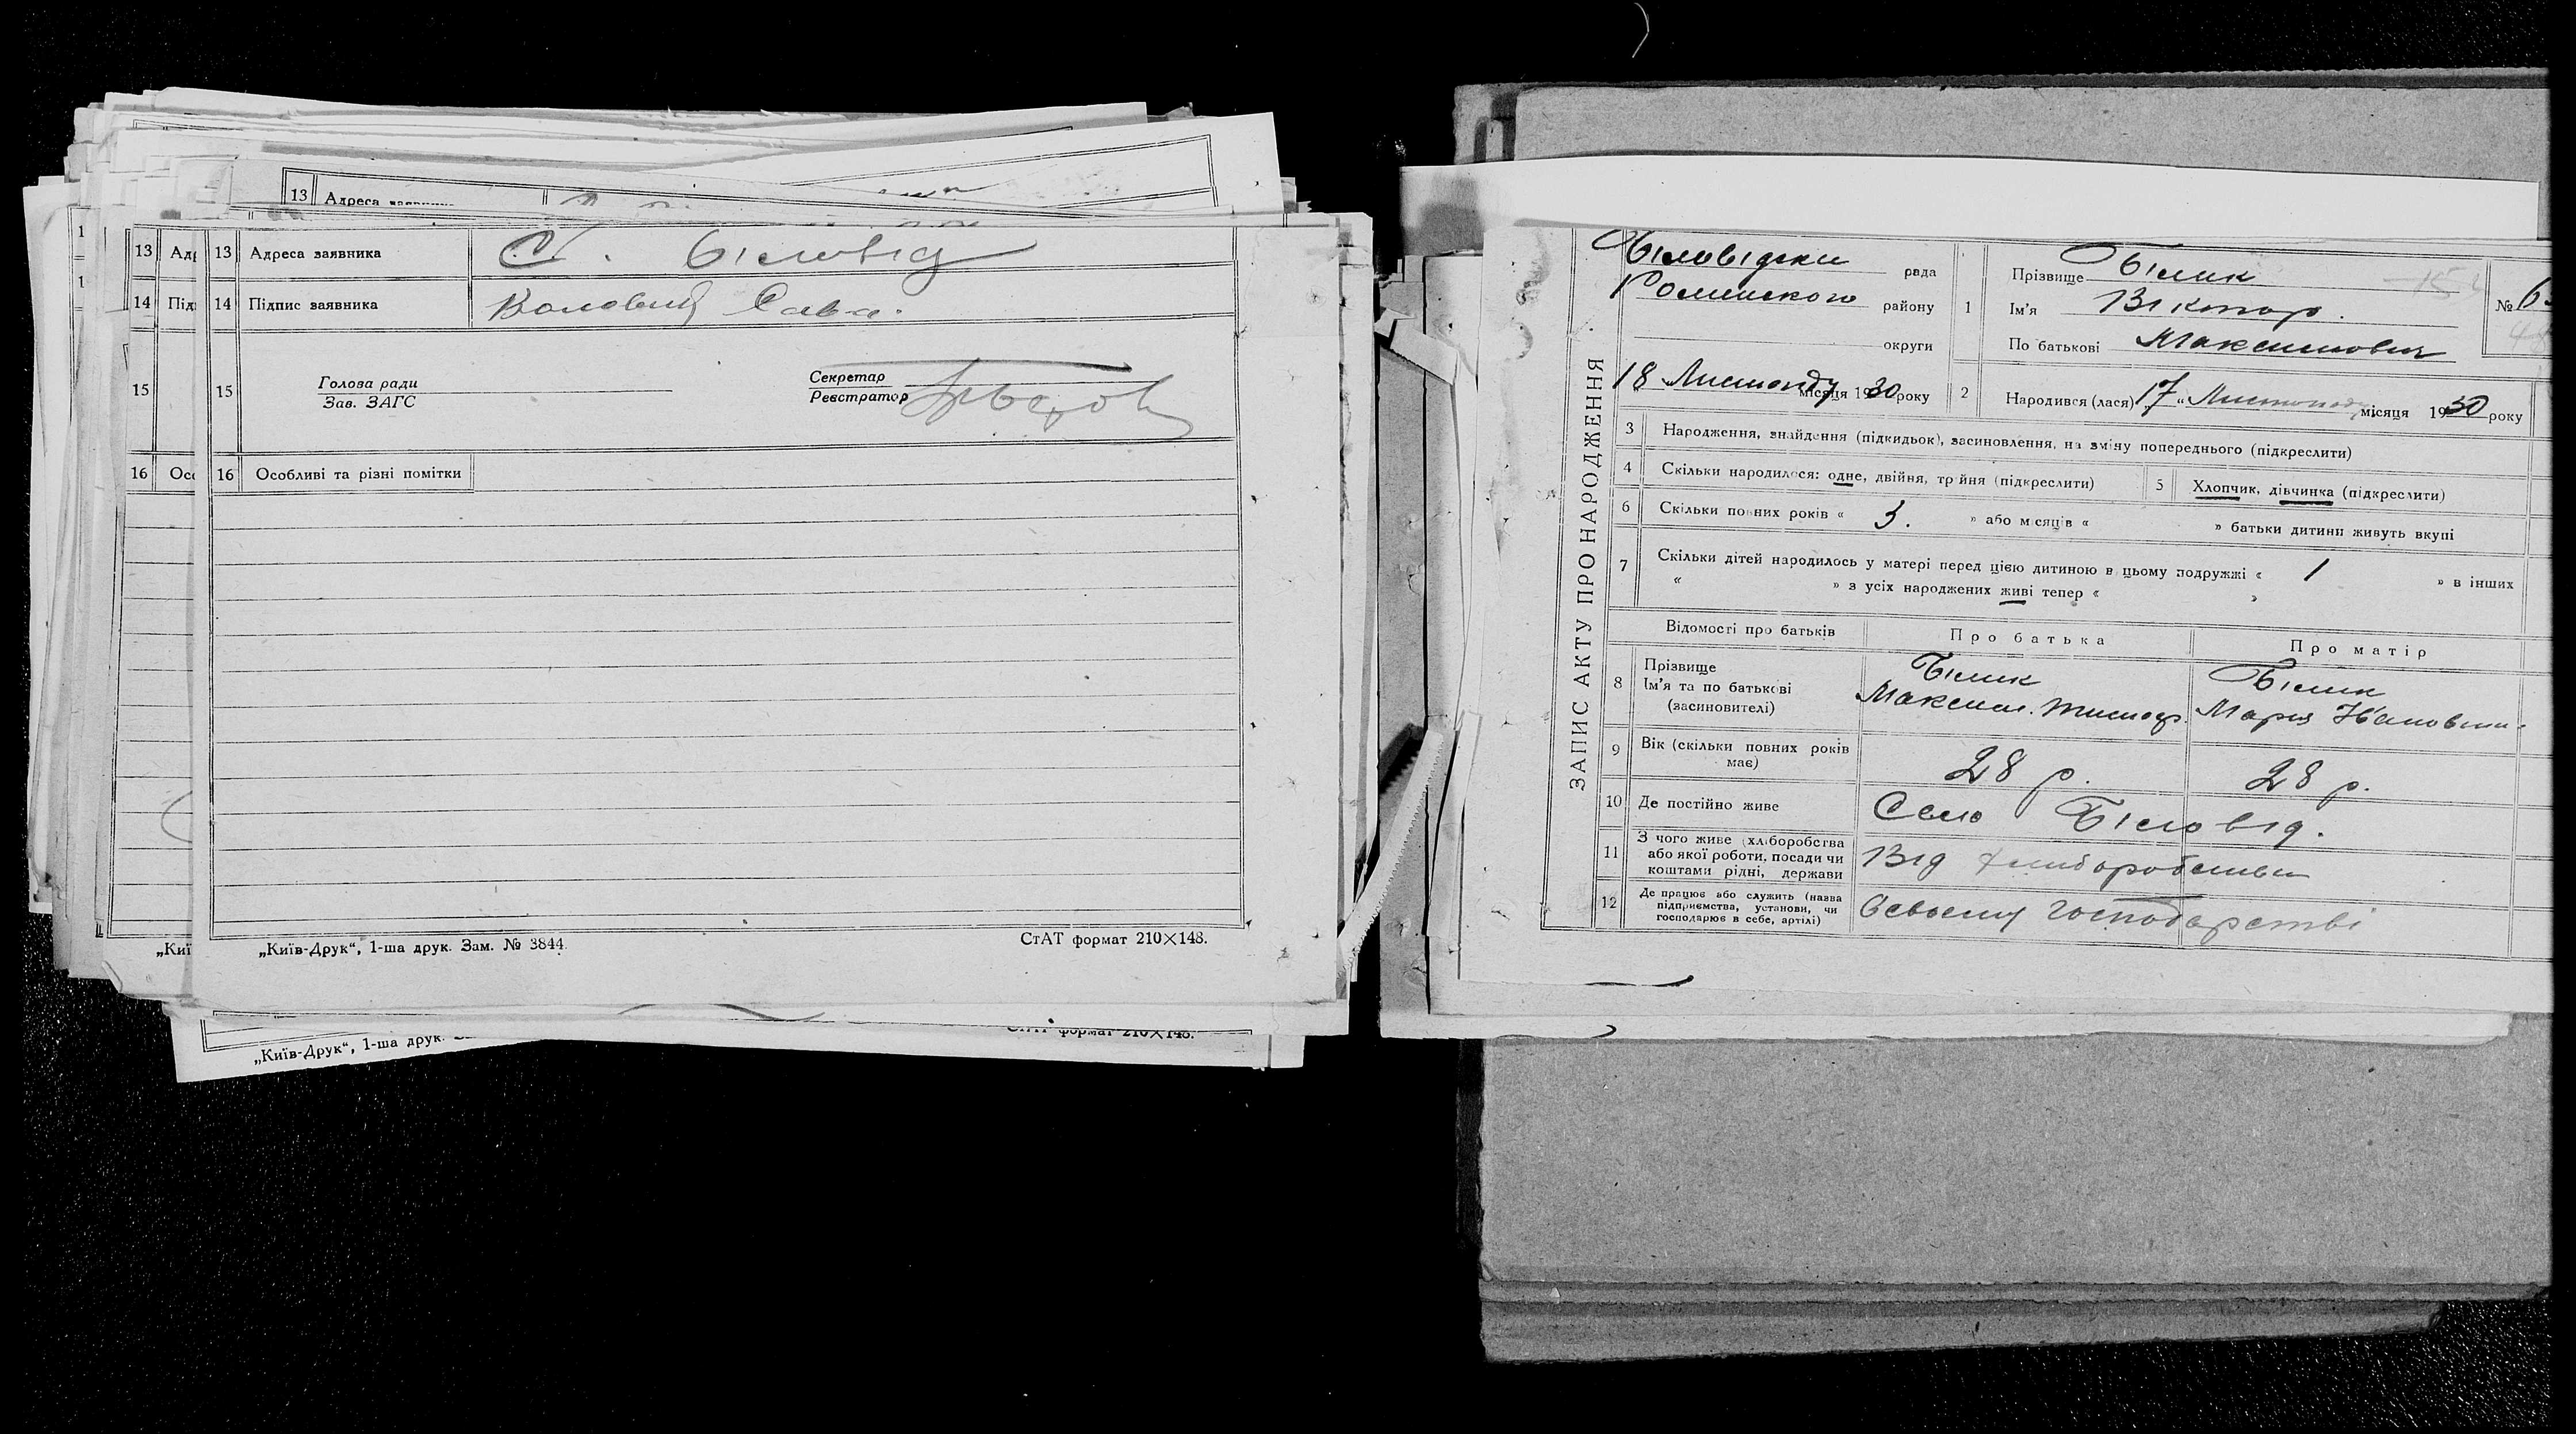 13 Адреса заявника
13 Ад 13 Адреса заявника С. Біловід
14 Під 14 Підпис заявника Коловий Сава.
15 15 Голова ради
Зав. ЗАГС
Секретар
Реєстратор
16 Осо 16 Особливі та різні помітки
„Киї „Київ-Друк“, 1-ша друк. Зам. № 3844.
СтАТ формат 210×148.
„Київ-Друк“, 1-ша друк.
СтАТ формат 210×148.
ЗАПИС АКТУ ПРО НАРОДЖЕННЯ
Біловідски рада
Роменського району
округи
18 Листопаду місяця 1930 року
1 Прізвище Білик
Ім'я Віктор.
По батькові Максимович
№ 6
2 Народився (лася) „17“ Листопаду місяця 1930 року
3 Народження, знайдення (підкидьок), засиновлення, на зміну попереднього (підкреслити)
4 Скільки народилося: одне, двійня, тройня (підкреслити) 5 Хлопчик, дівчинка (підкреслити)
6 Скільки повних років « 3. » або місяців « » батьки дитини живуть вкупі
7 Скільки дітей народилось у матері перед цією дитиною в цьому подружжі « 1 » в інших
« » з усіх народжених живі тепер « »
Відомості про батьків Про батька Про матір
8 Прізвище Ім'я та по батькові (засиновителі)
Білик Білик
Максим. Тимоф. Мария Ивановна.
9 Вік (скільки повних років має) 28 р. 28 р.
10 Де постійно живе Село Біловід.
11 З чого живе (хліборобства або якої роботи, посади чи коштами рідні, держави Від хліборобства
12 Де працює або служить (назва підприємства, установи, чи господарює в себе, артілі) В своєму господарстві